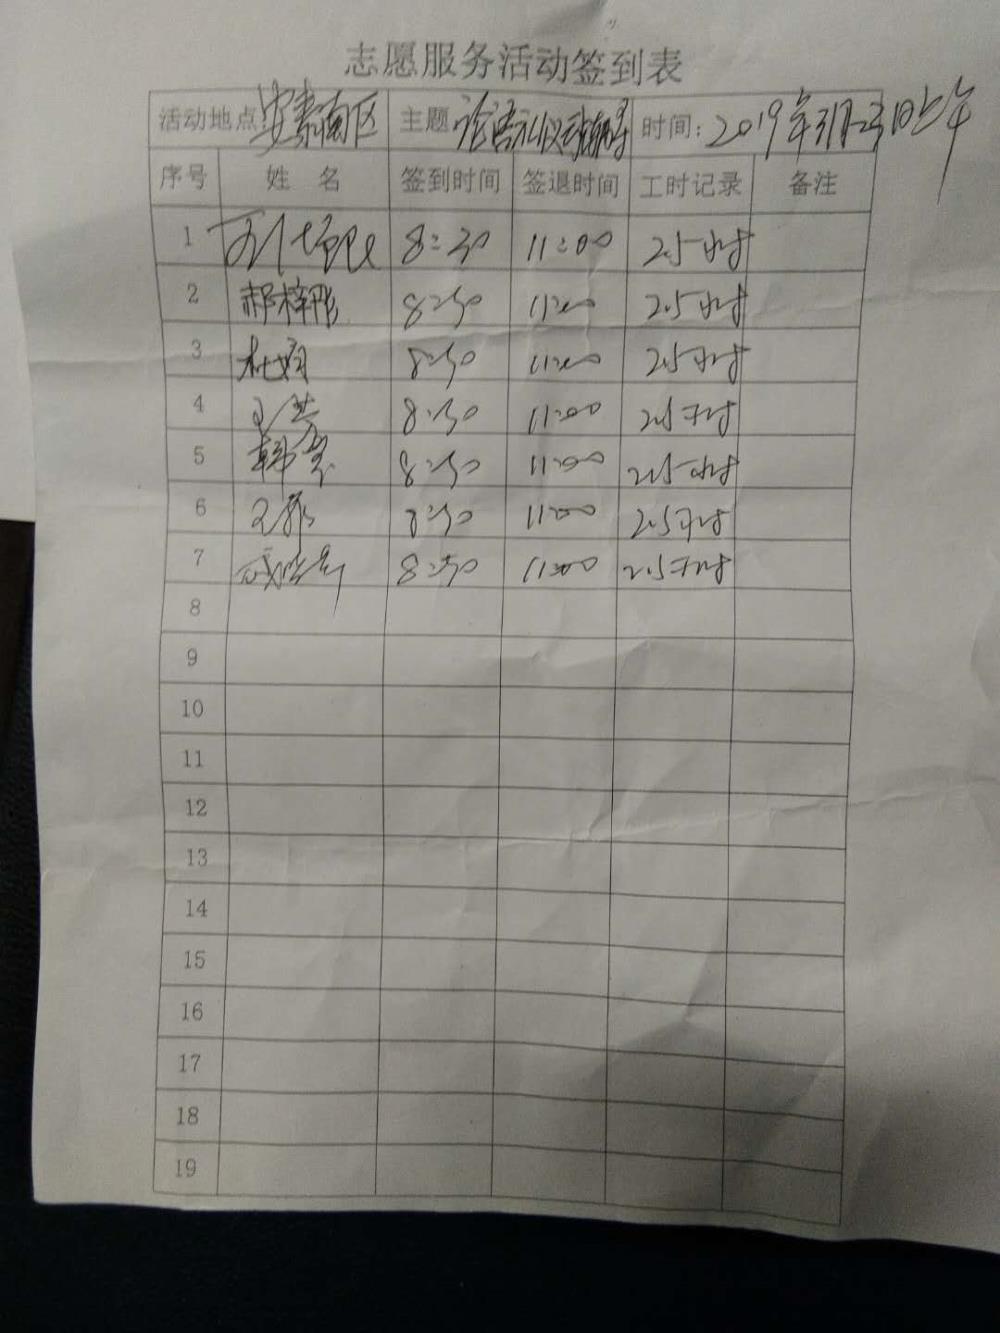 志愿服务活动签到表
活动地点: 安素南区 主题 论语礼仪 时间: 2019年3月23日上午
序号 姓 名 签到时间 签退时间 工时记录 备注
1 8:30 11:00 2.5小时
2 郝梓彤 8:30 11:00 2.5小时
3 杜娟 8:30 11:00 2.5小时
4 8:30 11:00 2.5小时
5 8:30 11:00 2.5小时
6 8:30 11:00 2.5小时
7 8:30 11:00 2.5小时
8
9
10
11
12
13
14
15
16
17
18
19